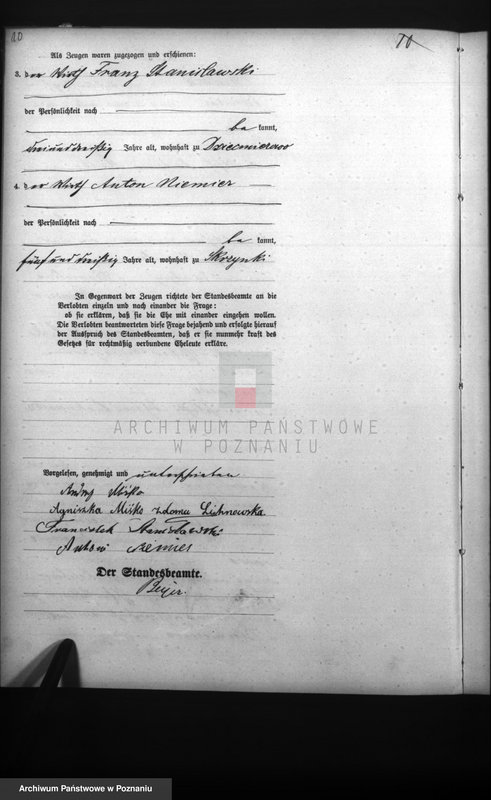 10
10
Als Zeugen waren zugezogen und erschienen:
3. der Wirth Franz Stanislawski
der Persönlichkeit nach
be kannt,
dreiunddreißig Jahre alt, wohnhaft zu Dziecmierowo
4. der Wirth Anton Niemier
der Persönlichkeit nach
be kannt,
fünf und dreißig Jahre alt, wohnhaft zu Skrzynki
In Gegenwart der Zeugen richtete der Standesbeamte an die
Verlobten einzeln und nach einander die Frage:
ob sie erklären, daß sie die Ehe mit einander eingehen wollen.
Die Verlobten beantworteten diese Frage bejahend und erfolgte hierauf
der Ausspruch des Standesbeamten, daß er sie nunmehr kraft des
Gesetzes für rechtmäßig verbundene Eheleute erkläre.
ARCHIWUM PAŃSTWOWE
W POZNANIU
Vorgelesen, genehmigt und unterschrieben
Andrzej Miśko
Agniszka Miśko z domu Lichnowska
Franciszek Stanisławski
Antoni Niemier
Der Standesbeamte.
Beijer.
Archiwum Państwowe w Poznaniu